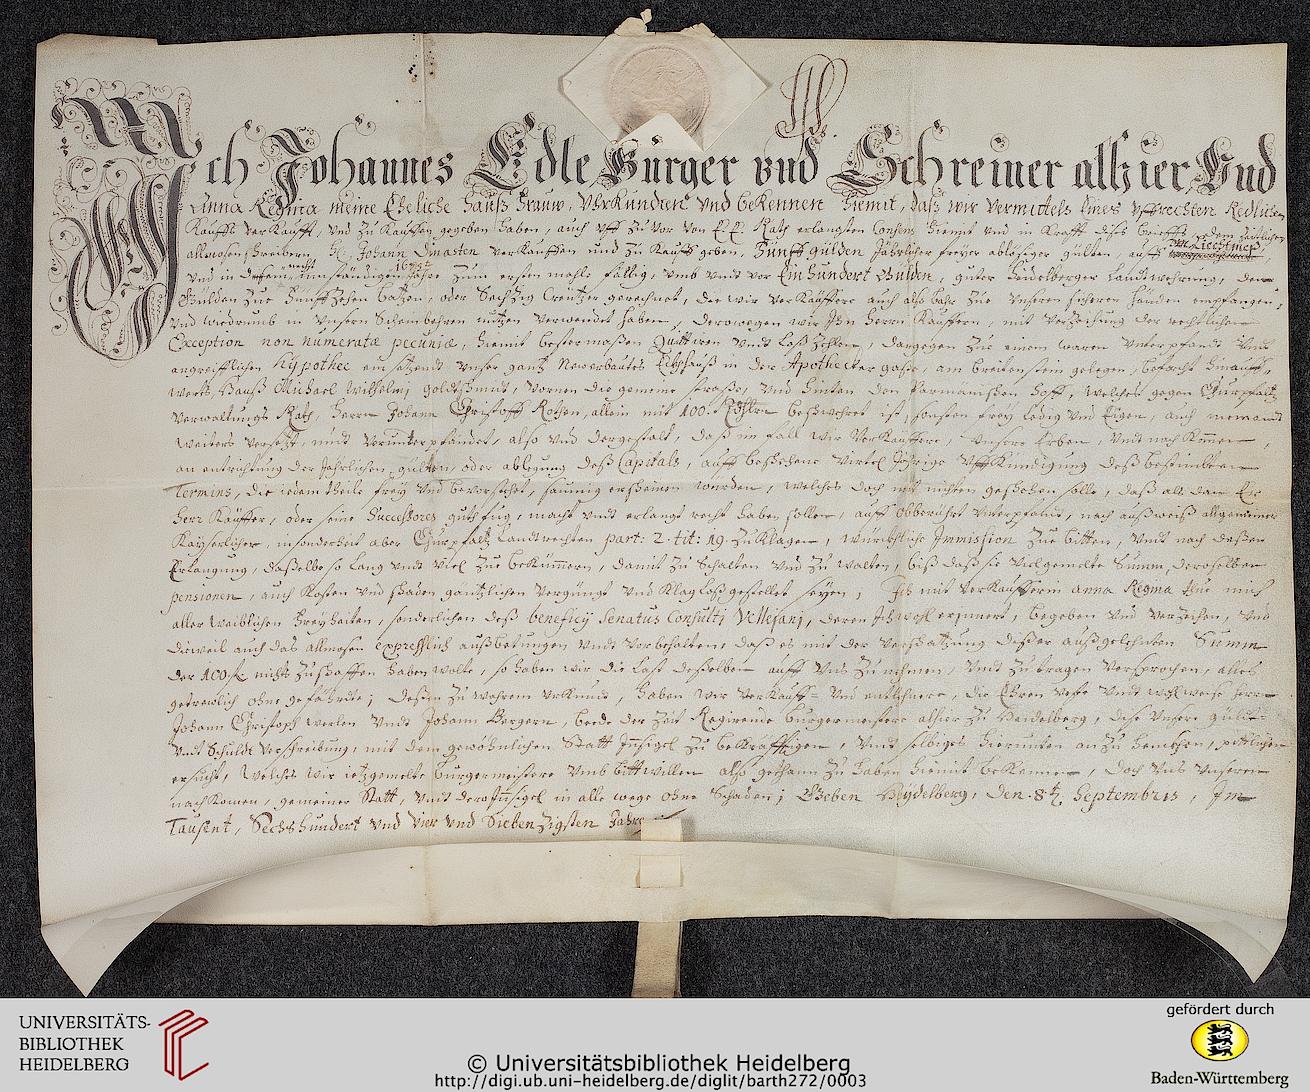 Ich Johannes Edle Burger vnd Schreiner alhier, Vnd
Anna Regina meine Eheliche Hauß Frauw, Vhrkundten vnd bekennen hiemit, daß wir vermittels Eines vffrechten Redlichen
Kauffs verkaufft, vnd zu Kauffen gegeben haben, auch vff zu vor von E.E. Rath erlangten Consens hiemit vnd in Krafft dises brieffs, dem Zeitlichen
allmosenschreibern H. Johann Verkauffen und zu Kauff geben, Fünff gülden Jährlicher freyer ablösiger gülten, auff Liechtmeß
vnd in dessen nechst 1675 zum ersten mahls fällig, vmb vndt vor Ein hundert Gulden, guter Heidelberger Landtwehrung, den
Gulden zue funffzehen batzen, oder Sechzig Creutzer gerechnet, die wir Verkäuffere auch also bahr zue vnseren sicheren händen empfangen,
vnd wiedrumb in vnsern Scheinbahren nutzen verwendet haben, derowegen wir Ihn Herrn Käuffern, mit verzeihung der rechtlichen
Exception non numeratæ pecuniæ, hiemit bestermaßen Quittiren vndt Loß Zehlen, dargegen zue einem waren vnterpfandt vndt
angreifflichen Hypothec einsetzendt vnser gantz Newerbautes Eckhauß in der Apothecker gaßen, am breitenstein gelegen, beforcht hinauff-
werts Hanß Michael Wilhelmj goldtschmidt, vornen die gemeine straße, vnd hinten den hoff, welches gegen Churpfaltz
verwaltungs Rath, Herrn Johann Christoff Rothen, allein mit 100. Rthlrn beschwehret ist, sonsten frey ledig vnd Eigen, auch niemandt
weiters versetzt, undt verunterpfändet, also vnd dergestalt, daß im fall wir Verkäuffere, vnsere Erben, vndt nachkommen,
an entrichtung der Jährlichen gülten, oder ablegung deß Capitals, auff beschehene viertel Jährige Vffkündigung deß bestimbten
Termins, die iedem theile frey vnd bevorstehet, saumig erscheinen würden, welches doch mit nichten geschehen solle, daß als dan Er
Herr Käuffer, oder seine Successores guth fug, macht vndt erlangt recht haben sollen, auff obberührt vnterpfandt, nach außweiß allgemeiner
Kayserlicher, insonderheit aber Churpfaltz Landtrechten part: 2. tit: 19. zu Klagen, würckhliche Immission zue bitten, vndt nach deßen
Erlangung, daßelbe so lang vndt viel zue bekümmern, damit zu schalten vnd zu walten, biß daß sie vielgemelte Summ, deroselben
pensionen, auch Kosten vnd schaden gäntzlichen vergnügt vnd Klagloß gestellet seyen; Ich mit Verkäufferin Anna Regina thue mich
aller weiblichen Freyheiten, sonderlichen deß beneficij Senatus Consulti Vellejani, deren Ich wohl erinnert, begeben vnd verzeihen, vnd
dieweil auch das allmosen expresslich außbetungen vndt vorbehalten, daß es mit der verschatzung deßer außgelehnten Summ
der 100 fl. nichts zu schaffen haben wolte, so haben wir die Last deßelben auff vns zu nehmen, vndt zu tragen versprochen, alles
getrewlich ohne gefährde; deßen zu wahrem vrkundt, haben wir Verkäuff- vnd entlehnere, die Ehren veste vndt wohlweise Herrn
Johann Christoph werlen vndt Johann Bergern, beede der Zeit Regirende Burgermeistere alhier zu Heidelberg, dise vnsere güldt-
vndt Schuldt Verschreibung, mit dem gewöhnlichen Statt Insigel zu bekräfftigen, vndt selbiges hierunten an zu hencken, pittlichen
ersucht, welches wir ietzgemelte Burgermeistere vmb bitt willen also gethann zu haben hiemit bekennen, doch vns vnseren
nachkomen, gemeiner Statt, vndt dero Insigel in alle wege ohne schaden; Geben Heydelberg, den 8t. Septembris, Im
Tausent, Sechshundert vnd vier vnd Siebenzigsten Jahre
UNIVERSITÄTS-
BIBLIOTHEK
HEIDELBERG
© Universitätsbibliothek Heidelberg
http://digi.ub.uni-heidelberg.de/diglit/barth272/0003
gefördert durch
Baden-Württemberg